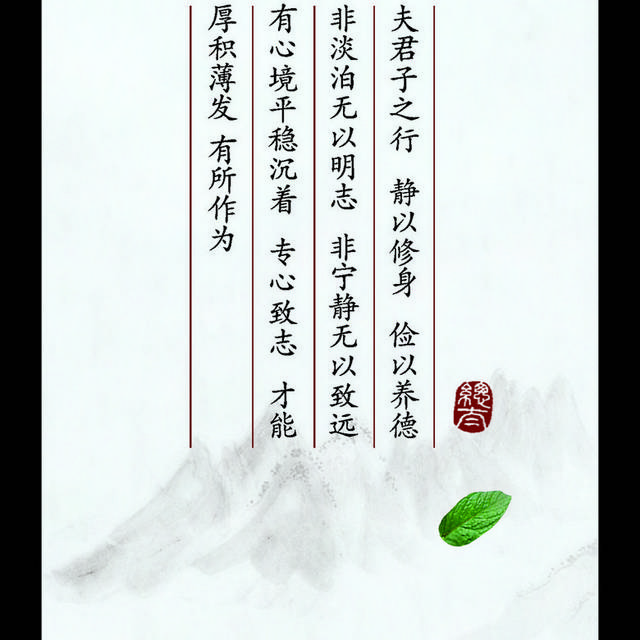 夫君子之行 静以修身 俭以养德
非淡泊无以明志 非宁静无以致远
有心境平稳沉着 专心致志 才能
厚积薄发 有所作为